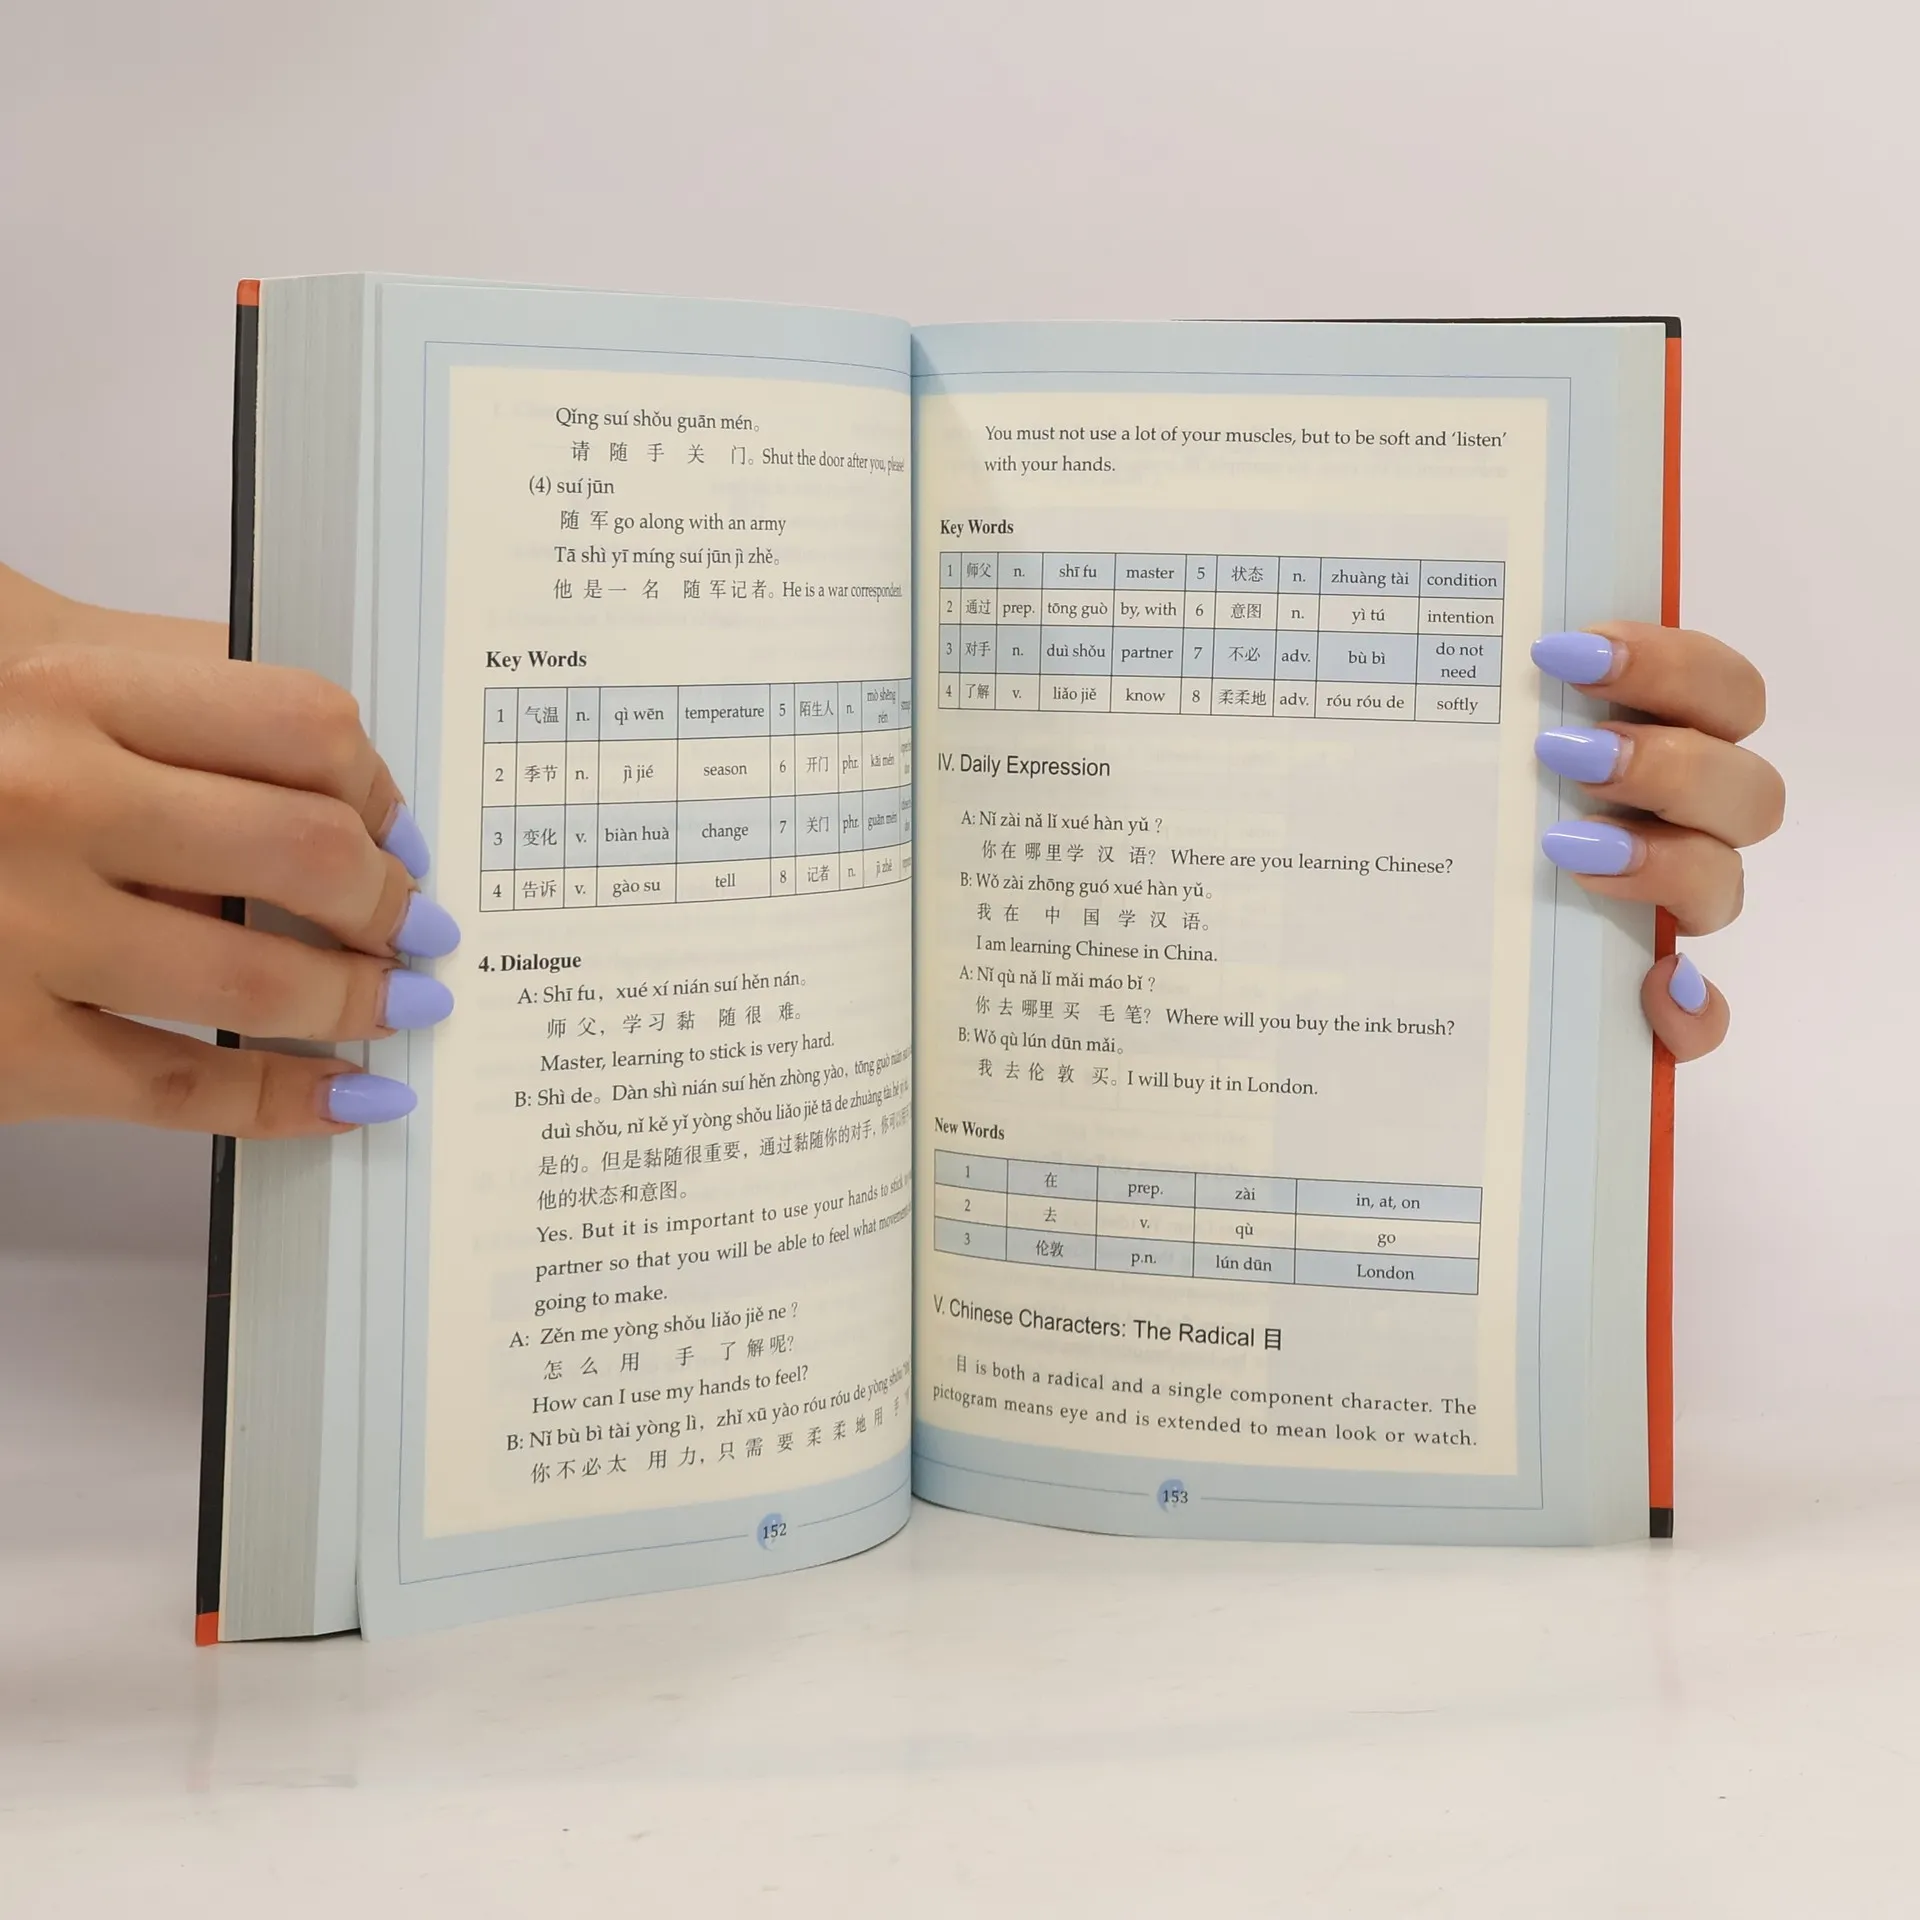 Qǐng suí shǒu guān mén。
请 随 手 关 门。Shut the door after you, please!
(4) suí jūn
随 军 go along with an army
Tā shì yī míng suí jūn jì zhě。
他 是 一 名 随 军 记者。He is a war correspondent.
Key Words
1 气温 n. qì wēn temperature 5 陌生人 n. mò shēng rén
2 季节 n. jì jié season 6 开门 phr. kāi mén
3 变化 v. biàn huà change 7 关门 phr. guān mén
4 告诉 v. gào su tell 8 记者 n. jì zhě
4. Dialogue
A: Shī fu，xué xí nián suí hěn nán。
师 父，学 习 黏 随 很 难。
Master, learning to stick is very hard.
B: Shì de。Dàn shì nián suí hěn zhòng yào，tōng guò nián suí
duì shǒu, nǐ kě yǐ yòng shǒu liǎo jiě tā de zhuàng tài hé yì tú。
是的。但是黏随很重要，通过黏随你的对手，你可以用
他的状态和意图。
Yes. But it is important to use your hands to stick
partner so that you will be able to feel what movement
going to make.
A: Zěn me yòng shǒu liǎo jiě ne？
怎 么 用 手 了 解 呢？
How can I use my hands to feel?
B: Nǐ bù bì tài yòng lì，zhǐ xū yào róu róu de yòng shǒu
你 不 必 太 用 力，只 需 要 柔 柔 地 用 手
152
You must not use a lot of your muscles, but to be soft and ‘listen’
with your hands.
Key Words
1 师父 n. shī fu master 5 状态 n. zhuàng tài condition
2 通过 prep. tōng guò by, with 6 意图 n. yì tú intention
3 对手 n. duì shǒu partner 7 不必 adv. bù bì do not need
4 了解 v. liǎo jiě know 8 柔柔地 adv. róu róu de softly
IV. Daily Expression
A: Nǐ zài nǎ lǐ xué hàn yǔ？
你 在 哪 里 学 汉 语？ Where are you learning Chinese?
B: Wǒ zài zhōng guó xué hàn yǔ。
我 在 中 国 学 汉 语。
I am learning Chinese in China.
A: Nǐ qù nǎ lǐ mǎi máo bǐ？
你 去 哪 里 买 毛 笔？ Where will you buy the ink brush?
B: Wǒ qù lún dūn mǎi。
我 去 伦 敦 买。I will buy it in London.
New Words
1 在 prep. zài in, at, on
2 去 v. qù go
3 伦敦 p.n. lún dūn London
V. Chinese Characters: The Radical 目
目 is both a radical and a single component character. The
pictogram means eye and is extended to mean look or watch.
153